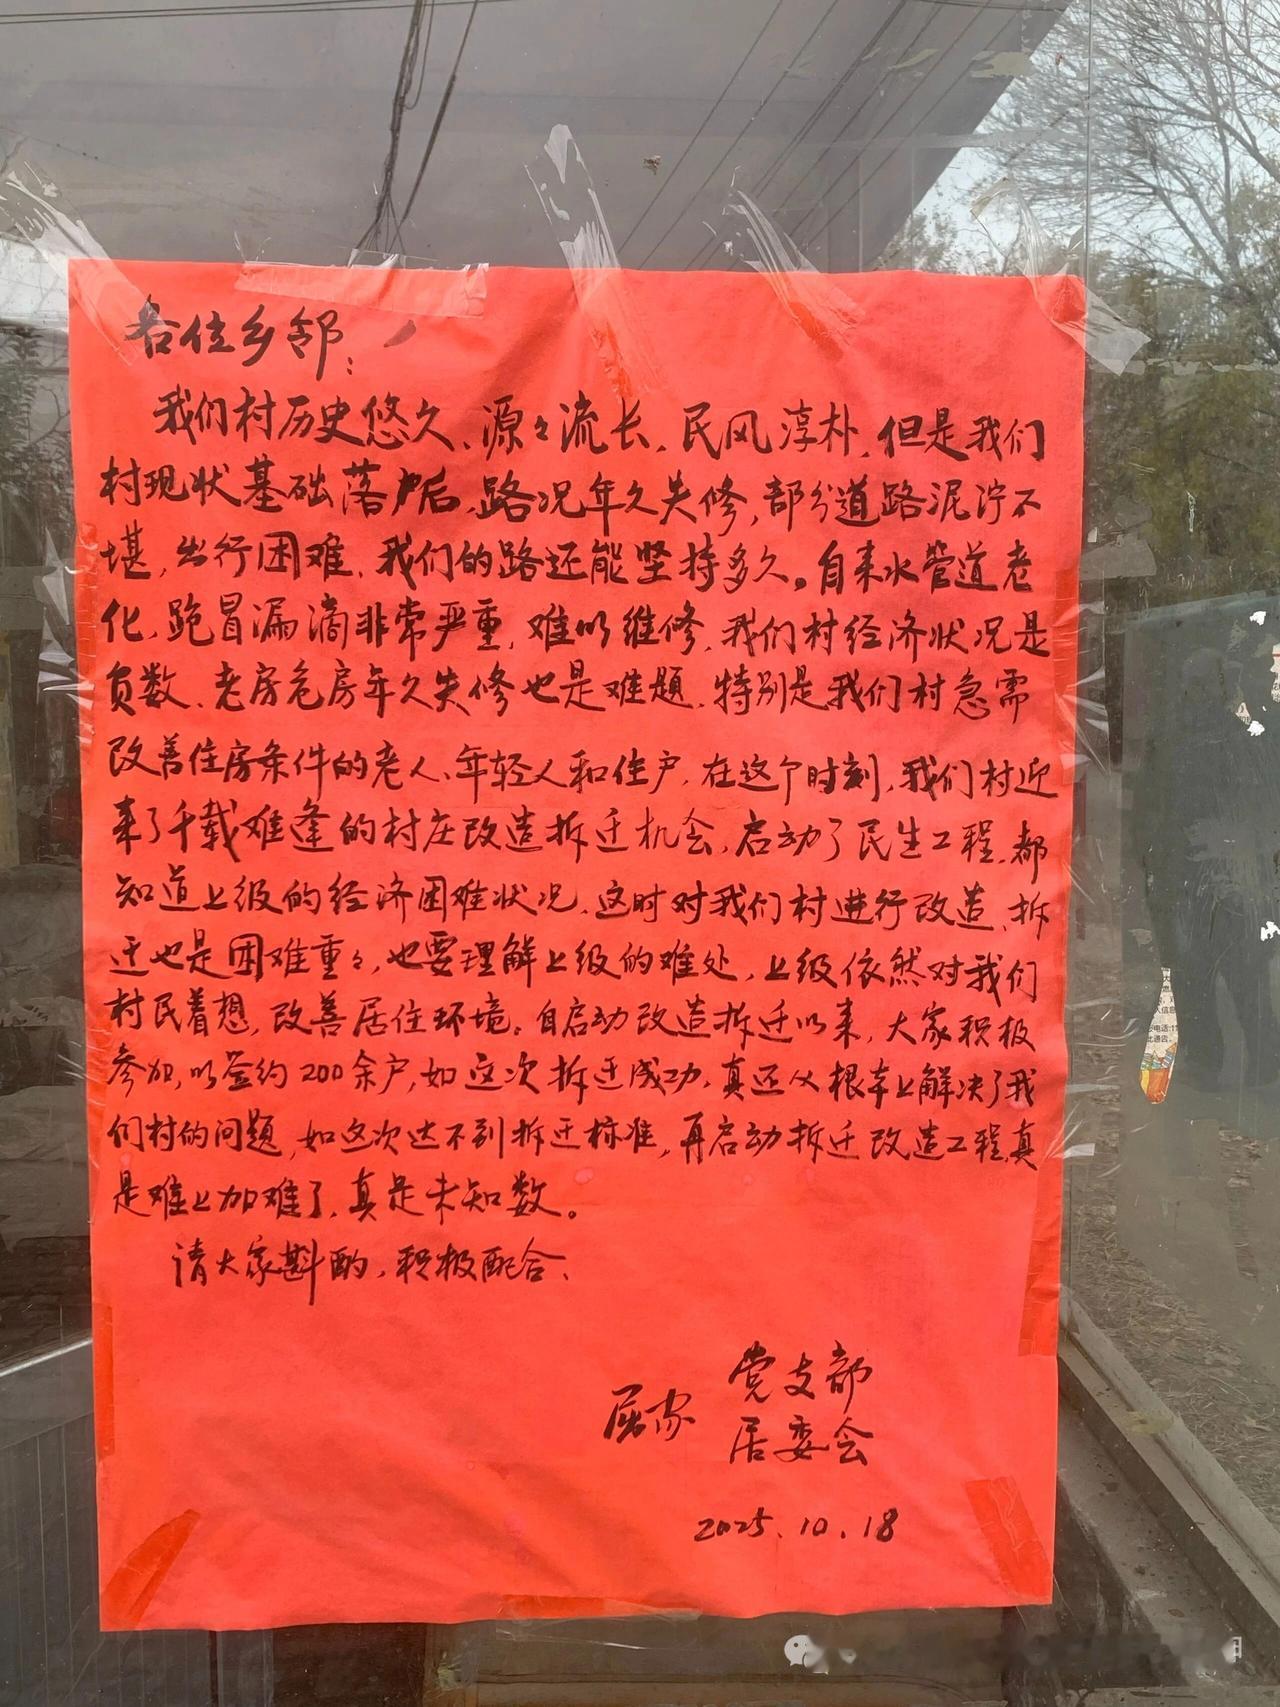 各位乡邻：
我们村历史悠久、源々流长，民风淳朴，但是我们
村现状基础落后，路况年久失修，部分道路泥泞不
堪，出行困难，我们的路还能坚持多久。自来水管道老
化，跑冒漏滴非常严重，难以维修，我们村经济状况是
负数、老房危房年久失修也是难题，特别是我们村急需
改善住房条件的老人、年轻人和住户，在这个时刻，我们村迎
来了千载难逢的村庄改造拆迁机会，启动了民生工程，都
知道上级的经济困难状况，这时对我们村进行改造、拆
迁也是困难重々，也要理解上级的难处，上级依然对我们
村民着想，改善居住环境。自启动改造拆迁以来，大家积极
参加，以签约200余户，如这次拆迁成功，真还从根本上解决了我
们村的问题，如这次达不到拆迁标准，再启动拆迁改造工程，真
是难上加难了，真是未知数。
请大家斟酌，积极配合、
屈家 党支部
居委会
2025.10.18